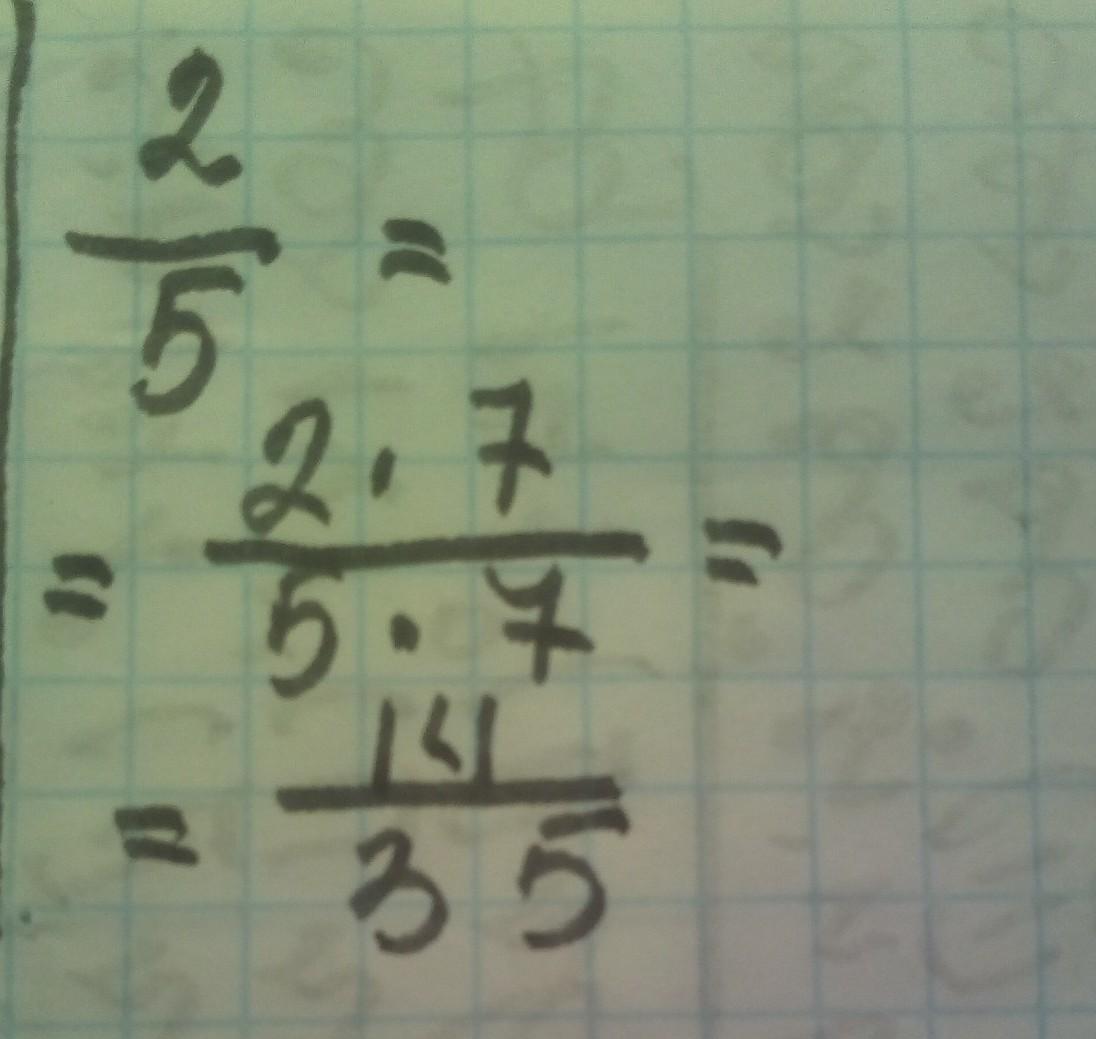 2/5 =
= 2 · 7 / 5 · 7 =
= 14 / 35